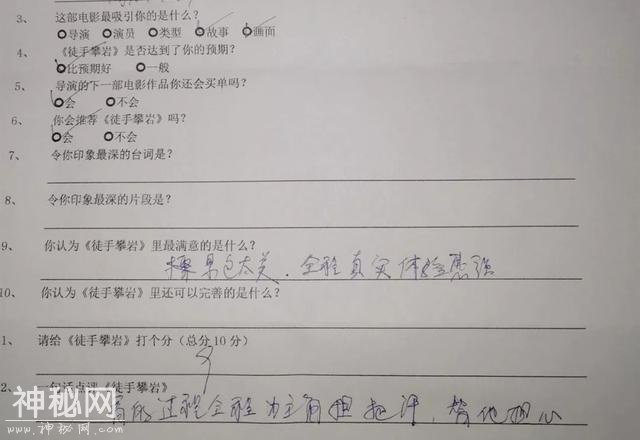 3、 这部电影最吸引你的是什么?
导演 演员 类型 故事 画面
4、 《徒手攀岩》是否达到了你的预期?
比预期好 一般
5、 导演的下一部电影作品你还会买单吗?
会 不会
6、 你会推荐《徒手攀岩》吗?
会 不会
7、 令你印象最深的台词是?
8、 令你印象最深的片段是?
9、 你认为《徒手攀岩》里最满意的是什么?
景色太美. 全程真实体验感强
10、 你认为《徒手攀岩》里还可以完善的是什么?
1、 请给《徒手攀岩》打个分(总分10分)
2、 一句话点评《徒手攀岩》
的过程全程为主角担把汗, 替他担心
神秘网
www.神秘网.com